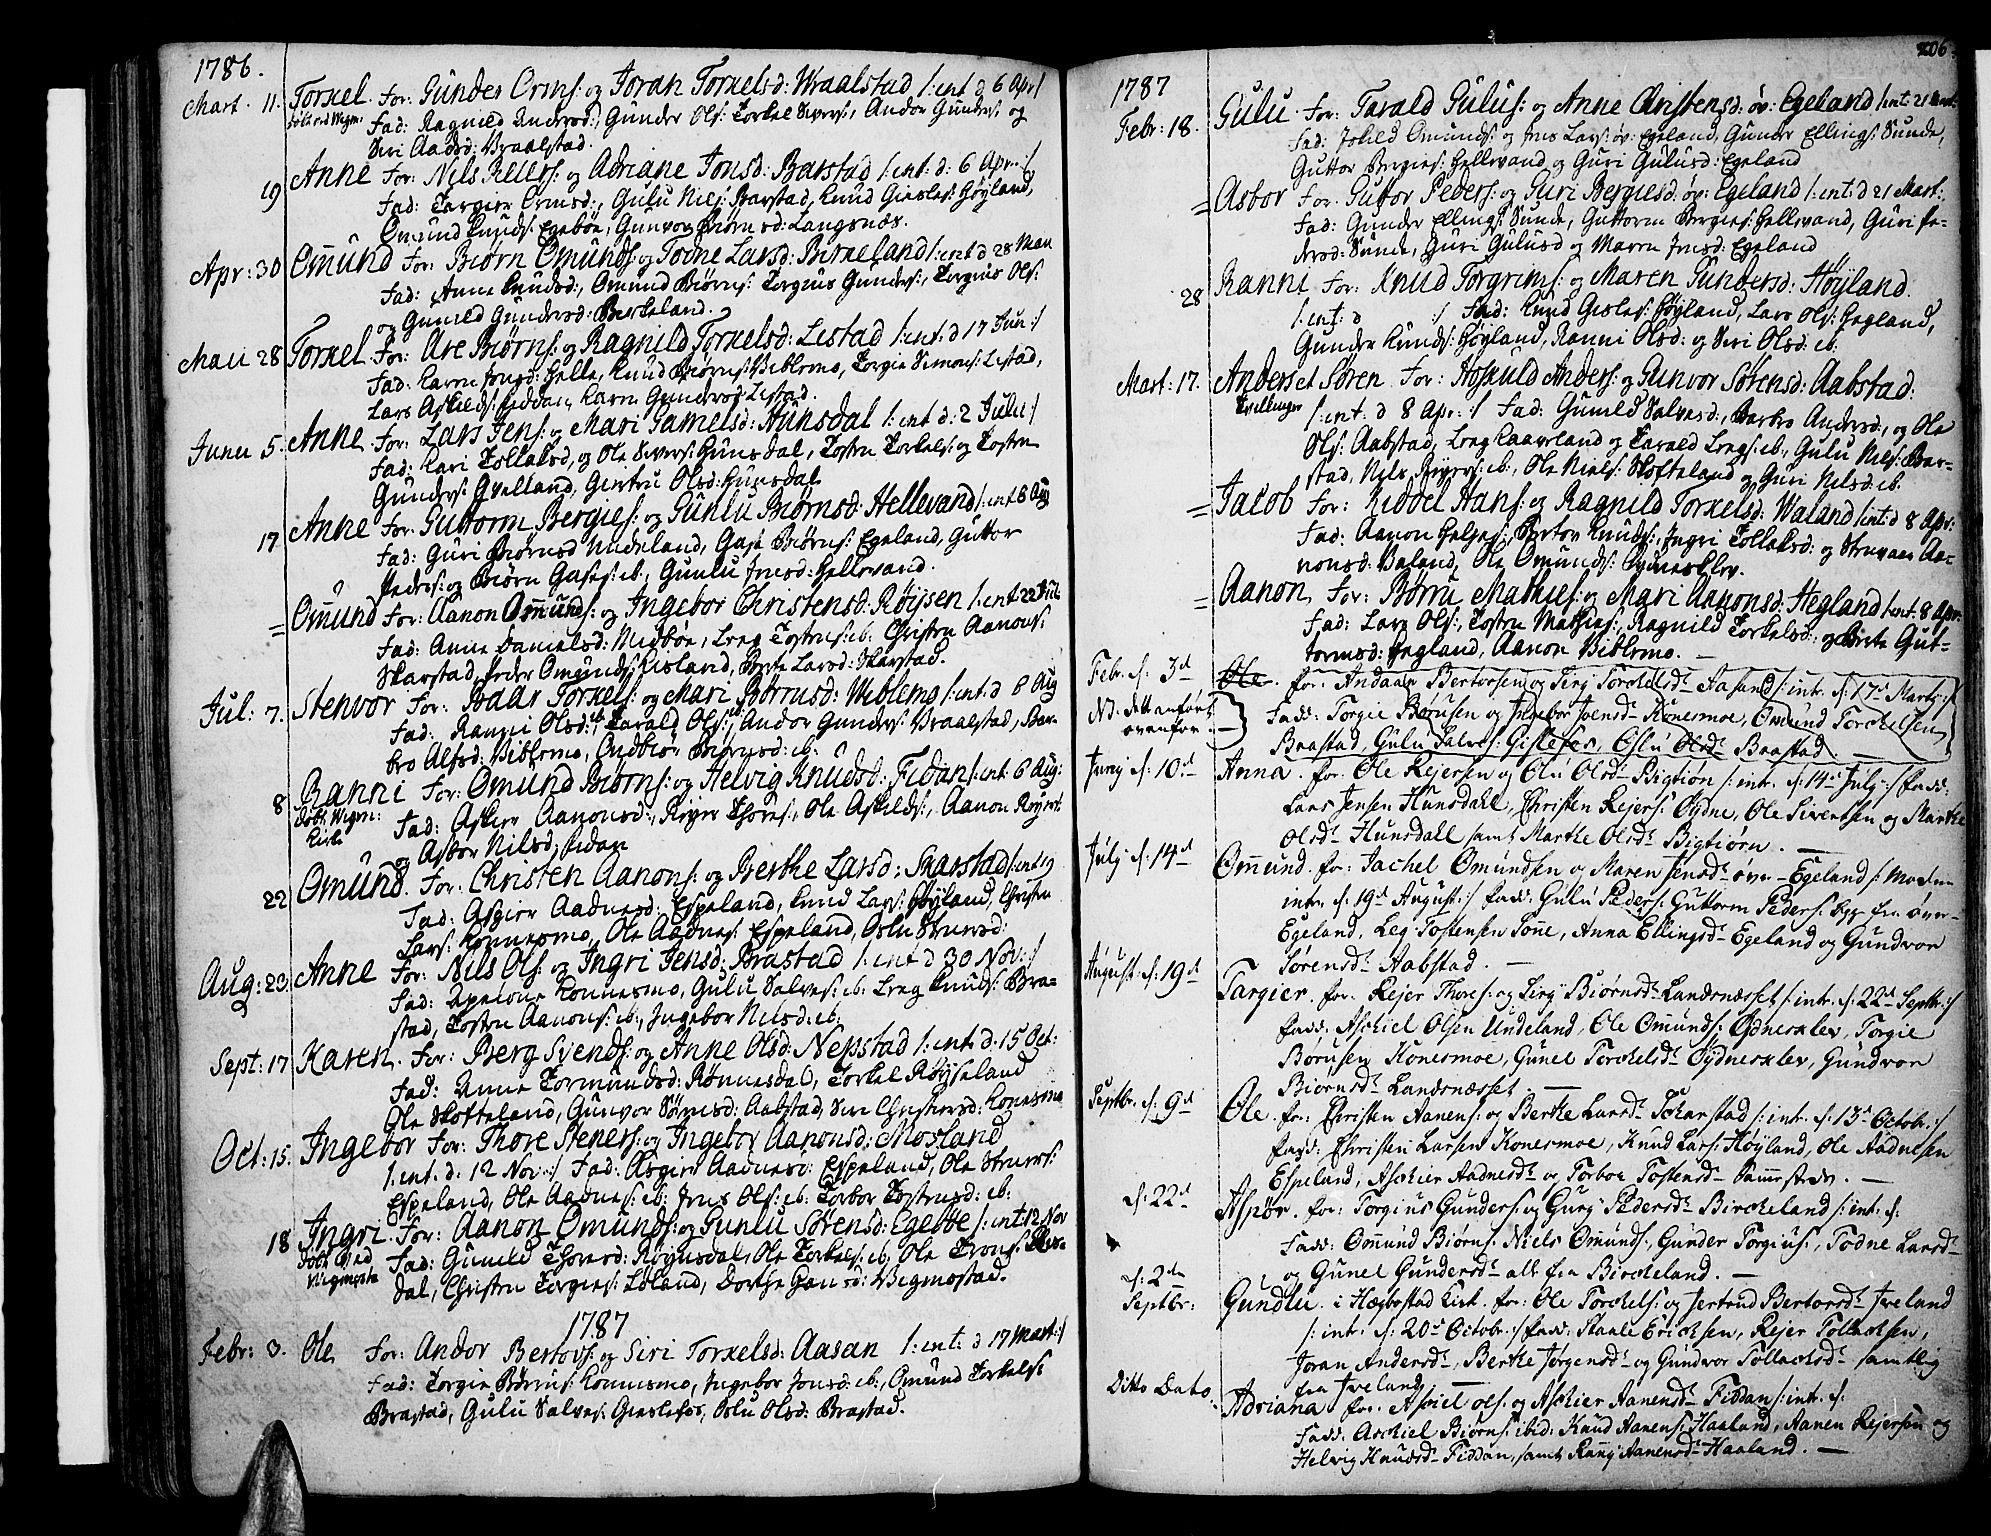 1786.
Mart. 11. Torkel. For: Gunder Orms: og Joran Torkelsd: Wraalstad /: int d 6 Apr /
Fad: Ragnild Andersd:, Gunder Ols: Torkel Sivers:, Andor Gunders: og
Siri Aadsd: Vraalstad.
19 Anne For: Nils Reiers: og Adriane Jonsd: Barstad /: int: d: 6 Apr. :/
Fad: Targier Ormsd:, Gulu Nils: Barstad, Knud Gislefs: Høyland,
Omund Knuds: Egebøe, Gunvor Biørnsd: Langenæs.
Apr: 30 Omund For: Biørn Omunds: og Todne Larsd: Birkeland /: int d 28 Maii
Fad: Anne Knudsd:, Omund Biørns: Torgius Gunders:, Torgius Ols:
og Gunild Gundersd: Berkeland.
Maii 28 Torkel For: Are Biørns: og Ragnild Torkelsd: Lestad /: int. d 17 Jun :/
Fad: Karen Jensd: Helle, Knud Biørns: Viblemo, Torgie Simons: Lestad,
Lars Askilds: Fiddan, Karen Gundersd: Lestad.
Junii 5. Anne. For: Lars Jens: og Mari Gamelsd: Hunsdal /: int d: 2 Julii :/
Fad: Kari Tollaksd, og Ole Sivers: Hunsdal, Tosten Torkels: og Tosten
Gunders: Qvelland, Gertru Olsd: Hunsdal.
17 Anne For: Guttorm Bergies: og Gunlu Biørnsd: Hellevand /: int 6 Aug
Fad: Guri Biørnsd Undeland, Gase Biørns: Egeland, Guttor
Peders: og Biørn Gases: ib., Gunlu Jensd: Hellevand.
= Omund For: Aanon Omunds: og Ingebor Christensd: Røysen /: int: 22 Jul:
Fad: Anne Danielsd: Midbøe, Lreg Tostens: ib: Christen Aanons:
Skarstad, Peder Omunds: Eisland, Berte Larsd: Skarstad.
Jul: 7. Stenvor For: Roar Torkels: og Mari Børrusd: Viblemo /: int: d 6 Aug
Fad: Ranni Olsd: ib: Tarald Ols: ib: Andor Gunders: Vraalstad, Bar-
bro Alfsd: Viblemo, Ondbiør Biørnsd: ib:
8 Ranni For: Omund Biørns: og Helvig Knudsd: Fidan /: int: 6 Aug:
Døbt Vigm: Kirke
Fad: Askier Aanonsd:, Reyer Thores:, Ole Askilds:, Aanon Reyers:
og Asbor Nilsd: Fidan
22 Omund. For: Christen Aanons: og Berthe Larsd: Skarstad /: int 19
Fad: Asgier Aadnesd: Espeland, Knud Lars: Høyland, Christen
Lars: Konnesmo, Ole Aadnes: Espeland, Oslu Strursd:
Aug: 20 Anne For: Nils Ols: og Ingri Jensd: Brastad /: int d 30 Nov: :/
Fad: Konnesmo, Gulu Salves: ib: Lreg Knuds: Bra-
stad, Tosten Aanons: ib:, Ingebor Nilsd: ib:
Sept: 17 Karen. For: Berg Svends: og Anne Olsd: Nepstad /: int. d. 15 Oct:
Fad: Anne Tormundsd: Rønnesdal, Torkel Røyseland
Ole Skofteland, Gunvor Sørensd: Aabstad, Siri Christensd: Konesmo
Oct: 15. Ingebor For: Thore Steners: og Ingebor Aanonsd: Mosland
/: int. d: 12 Nov: :/ Fad: Asgier Aadnesd: Espeland, Ole Strurs:
Espeland, Ole Aadnes: ib: Jens Ols: ib: Torbor Tostensd: ib:
18 Ingri. For: Aanon Omunds: og Gunlu Sørensd: Egebøe /: int 12 Nov
Døbt Ved Vigmosta
Fad: Gunild Thoresd: Røynesdal, Ole Torkels: ib. Ole Trons:
dal, Christen Torgies: Løland, Dorthe Hansd: Vigmostad.
1787
Febr: 3. Ole For: Andor Bertovs: og Siri Torkelsd: Aasan /: int: d 17 Mart: :/
Fad: Torgie Børrus: Konnesmo, Ingebor Jonsd: ib:, Omund Torkels:
Brastad, Gulu Salves: Gieslefos, Oslu Olsd: Brastad.
206
1787
Febr: 18. Gulu. For: Tarald Gulus: og Anne Christensd: øv: Egeland /: int: 21 Mart:
Fad: Johild Omunds: og Jens Lars: øv: Egeland, Gunder Ellings: Sunde,
Guttor Bergies: Hellevand og Guri Gulusd: Egeland
= Asbor For. Guttor Peders: og Guri Bergiesd: øv: Egeland /: int: d 21 Mart:
Fad: Gunder Ellings: Sunde, Guttorm Bergies: Hellevand, Guri Pe-
dersd: Sunde, Guri Gulusd og Maren Jensd: Egeland
28 Ranni For: Knud Torgrims: og Maren Gundersd: Høyland.
/: int: d :/ Fad: Knud Gislefs: Høyland, Lars Ols: Hegland,
Gunder Knuds: Høyland, Ranni Olsd: og Siri Olsd: ib.
Mart: 17. Anders et Søren. For: Hoskuld Anders: og Gunvor Sørensd: Aabstad.
Tvillinger /: int: d 8 Apr: :/ Fad: Gunild Salvesd:, Barbro Andersd:, og Ole
Ols: Aabstad, Lreg Kaaveland og Tarald Lregs: ib., Gulu Nils: Bar-
stad, Nils Reyers: ib:, Ole Niels: Skofteland og Guri Nilsd: ib.
= Jacob For: Riddel Hans: og Ragnild Torkelsd: Waland /: int: d 8 Apr:
Fad: Aanon Helges: Bertov Knuds:, Ingri Tollaksd: og Strunaas Aa-
nonsd: Valand, Ole Omunds: Oydneskley.
= Aanon, For: Børru Mathies: og Mari Aanonsd: Hegland /: int: 8 Apr:
Fad: Lars Ols:, Tosten Mathies:, Ragnild Torkelsd: og Berte Gut-
tormsd: Hegland, Aanon Viblemo. —
Febr. d. 3d Ole. for. Andaar Bertovsen og Sirj Torckelsdt Aasand /: intr. d. 17d Martj :/
NB: dette anført ovenfor.
Fadd: Torgie Børusen og Ingebor Joensdt Konesmoe, Omund Torckelsen
Braastad, Gulu Salves: Gislefos, Oslu Olsdt Braastad. —
Junj d. 10d Anna. for. Ole Rejersen og Oslu Olsdt Bigtiøn /: intr. d. 14d July :/ fadd:
Lars Jensen Hunsdahl, Christen Rejers: Øydne, Ole Sivertsen og Marthe
Olsdt Hunsdall samt Marthe Olsdt Bigtiørn. —
July d. 14d Ommund. for. Jachel Omundsen og Maren Jensdt øver Egeland /: Moderen
intr. d. 19d August :/ fadd: Gulu Peders: Guttorm Peders: bgge fra øver-
Egeland, Leg Tostensen Tone, Anna Ellingsdt Egeland og Gundvor
Sørensdt Aabstad. —
August: d. 19d Targier. for. Rejer Thores: og Sirj Biørnsdt Landsnæsset /: intr. d. 22d Septbr: :/
fadd: Aschiel Olsen Undeland, Ole Ommunds: Oydneskley, Torgie
Børusen Konesmoe, Gunel Torckelsdt Oydneskley, Gundvor
Biørnsdt Landsnæsset. —
Septbr. d. 9d Ole. for. Christen Aanens: og Berthe Larsdt Scharstad /: intr. d. 13d Octobr. :/
fadd: Christen Larsen Konesmoe, Knud Lars: Høyland, Ole Aadnesen
Espeland, Aschier Aadnesdt og Torboe Tostensdt Sammestedn. —
d. 22d Aspør. for. Torgius Gunders: og Gurj Pedersdt Birckeland /: int: d:
Fadd: Ommund Biørns: Niels Omunds:, Gunder Torgius:, Todne Larsdt
og Gunel Gundersdt alle fra Birckeland. —
d. 2den Septbr: Gundlu. i Hægbostad Kirk. for. Ole Torckels: og Jertrud Bertorsdt Ireland
/: intr. d. 20d Octobr. :/ fadd: Staale Ericksen, Rejer Tollacksen,
Joran Andersdt, Berthe Jørgensdt og Gundvor Tollacksdt samtlig
fra Ireland —
Ditto Dato. Adriana. for. Aschiel Ols: og Aschier Aanensdt Fiddan /: intr. d.
Fadd: Aschiel Biørns: ibid: Knud Aanens: Haaland, Aanen Rejersen og
Helvig Knudsdt Fiddan, samt Ranj Aanensdt Haaland. —